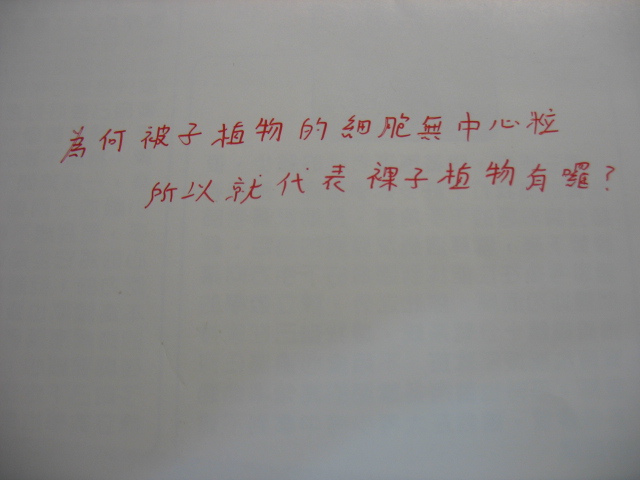 為何被子植物的細胞無中心粒
所以就代表裸子植物有囉?